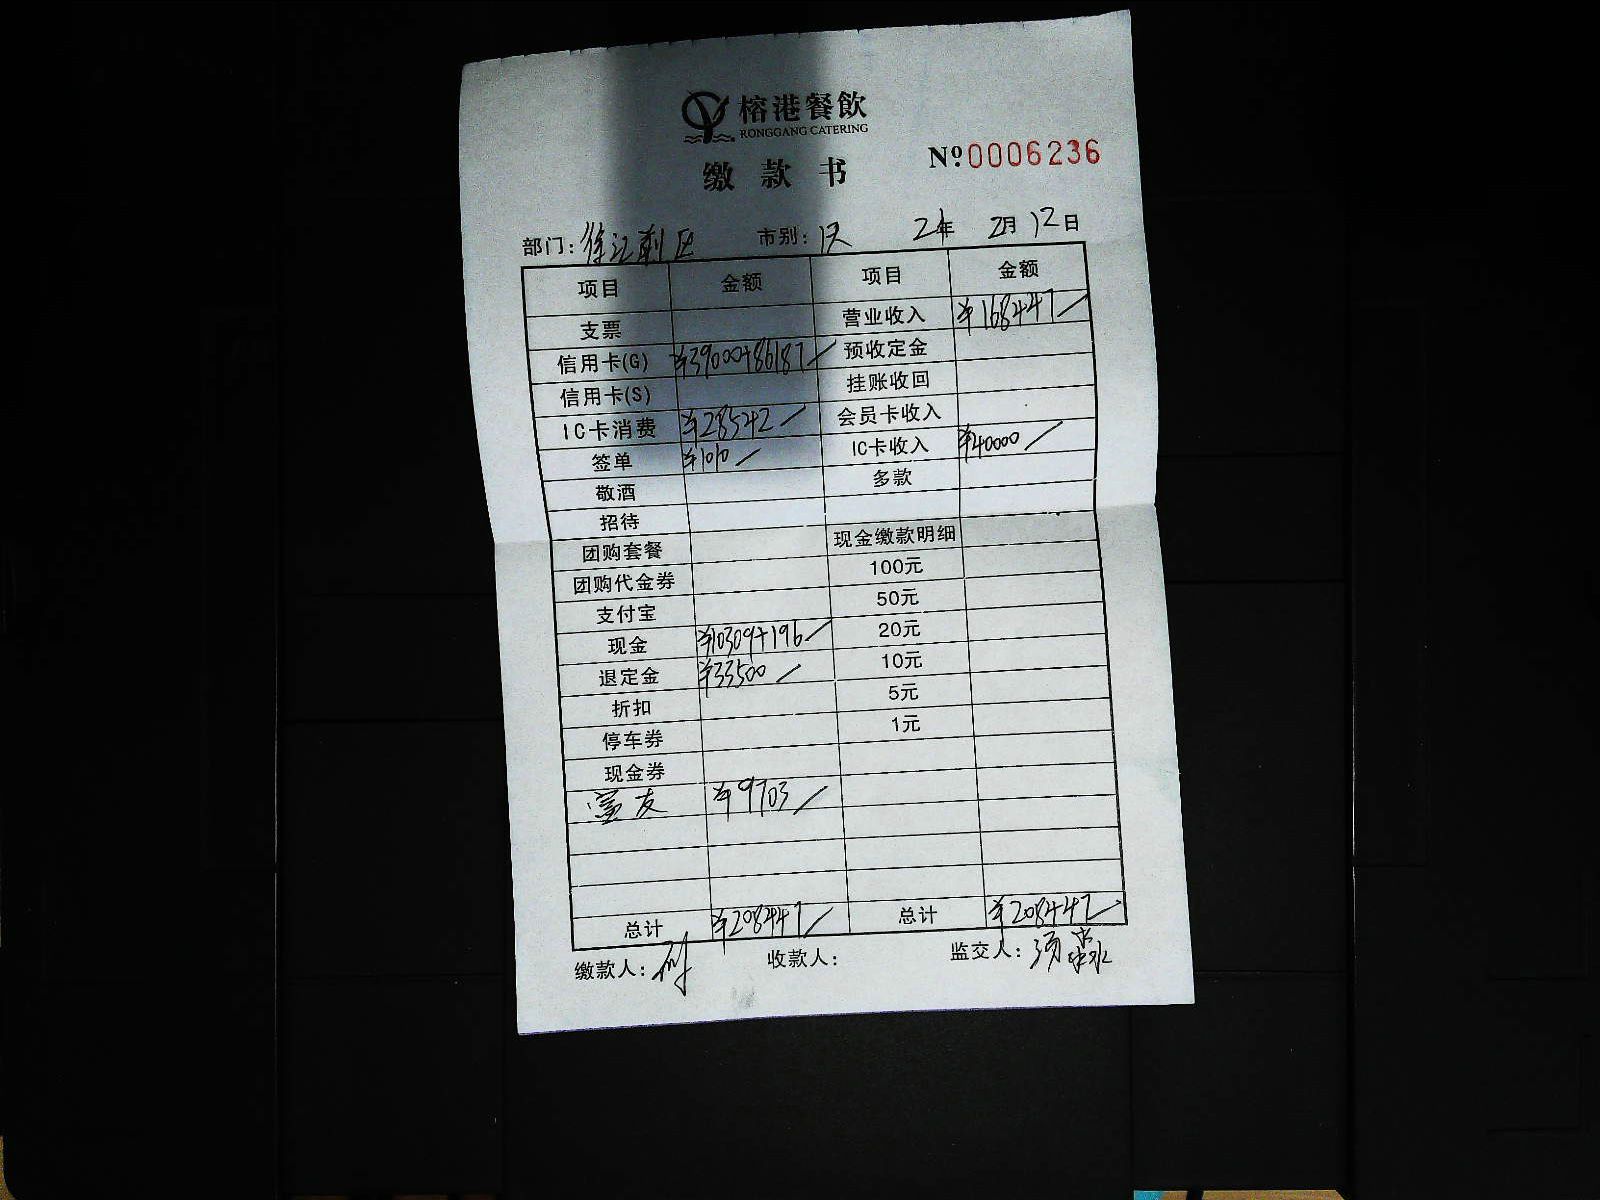 榕港餐飲
RONGGANG CATERING
缴款书
№0006236
部门：徐汇前区 市别： 21年 2月12日
项目 金额 项目 金额
支票 营业收入 ¥168447
信用卡(G) ¥39000+86187 预收定金
信用卡(S) 挂账收回
IC卡消费 ¥28542 会员卡收入
签单 ¥1010 IC卡收入 ¥40000
敬酒 多款
招待
团购套餐 现金缴款明细
团购代金券 100元
支付宝 50元
现金 ¥10309+196 20元
退定金 ¥33500 10元
折扣 5元
停车券 1元
现金券
富友 ¥9703
总计 ¥208447 总计 ¥208447
缴款人： 收款人： 监交人：